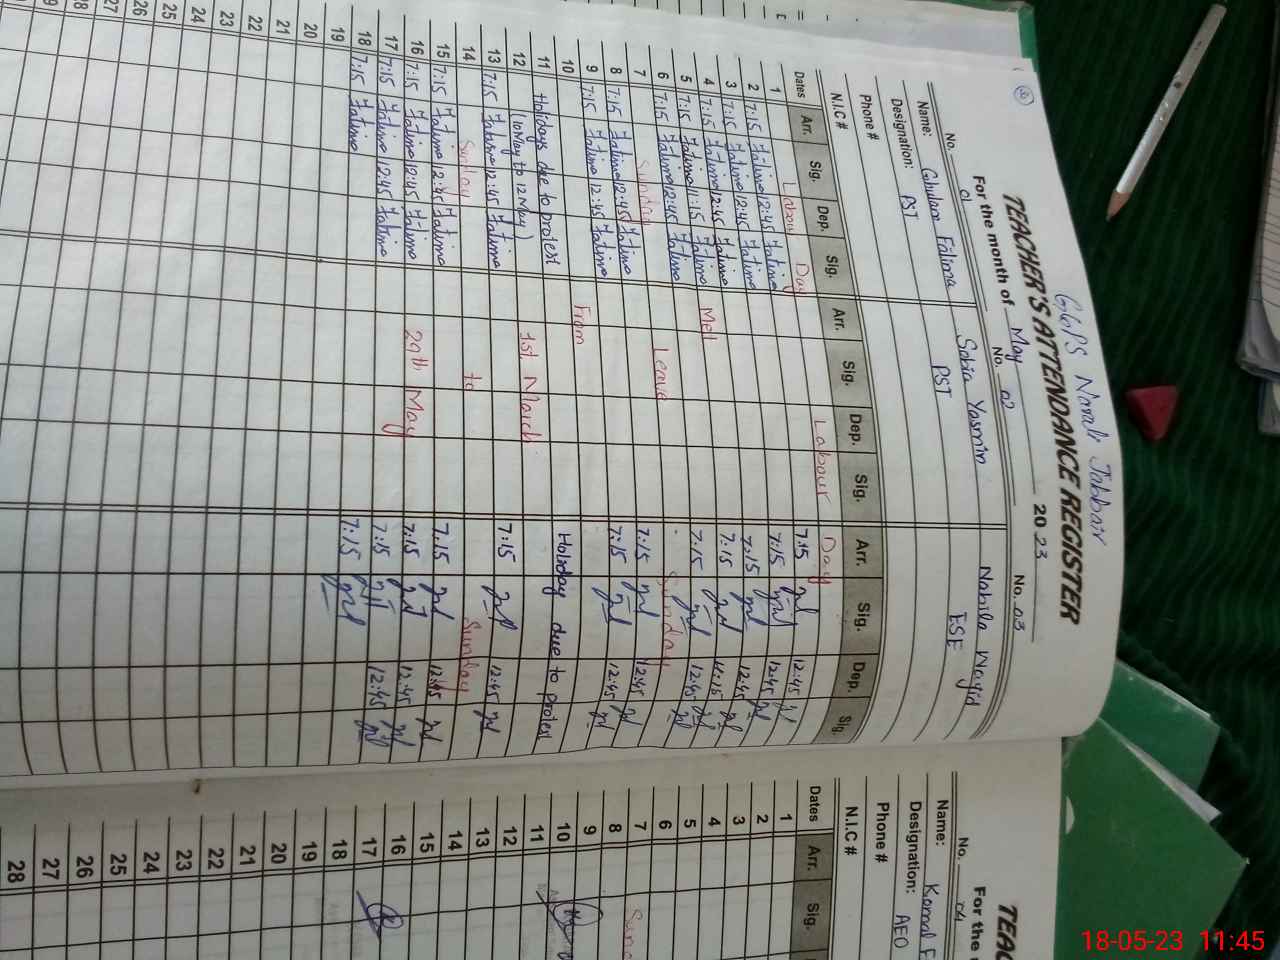 GGPS Narali Jabbair
TEACHER'S ATTENDANCE REGISTER
For the month of May 2023
No. 01 No. 02 No. 03
Name: Ghulam Fatima Sobia Yasmin Nabila Wajid
Designation: PST PST ESE
Phone #
N.I.C #
Dates Arr. Sig. Dep. Sig. Arr. Sig. Dep. Sig. Arr. Sig. Dep. Sig.
1 Labour Day Labour Day 7:15 12:45
2 7:15 Fatima 12:45 Fatima 7:15 12:45
3 7:15 Fatima 12:45 Fatima 7:15 12:45
4 7:15 Fatima 12:45 Fatima Met 7:15 11:15
5 7:15 Fatima 11:15 Fatima 7:15 12:45
6 7:15 Fatima 12:45 Fatima Leave
7 Sunday Sunday 7:15 12:45
8 7:15 Fatima 12:45 Fatima 7:15 12:45
9 7:15 Fatima 12:45 Fatima From
10
11 Holidays due to protest Holiday due to protest
12 (10 May to 12 May) 1st March
13 7:15 Fatima 12:45 Fatima 7:15 12:45
14 Sunday to Sunday
15 7:15 Fatima 12:45 Fatima 7:15 12:45
16 7:15 Fatima 12:45 Fatima 29th May 7:15 12:45
17 7:15 Fatima 12:45 Fatima 7:15 12:45
18 7:15 Fatima 7:15
19
20
21
22
23
24
25
26
27
28
29
TEAC
For the
No. 04
Name: Komal F
Designation: AEO
Phone #
N.I.C #
Dates Arr. Sig.
1
2
3
4
5
6
7 Sun
8
9
10
11
12
13
14
15
16
17
18
19
20
21
22
23
24
25
26
27
28
18-05-23 11:45